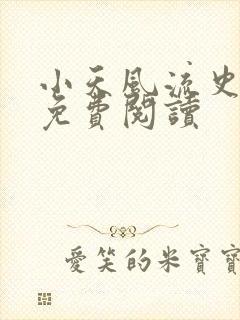 小天風流史
免費閱讀
愛笑的米寶寶